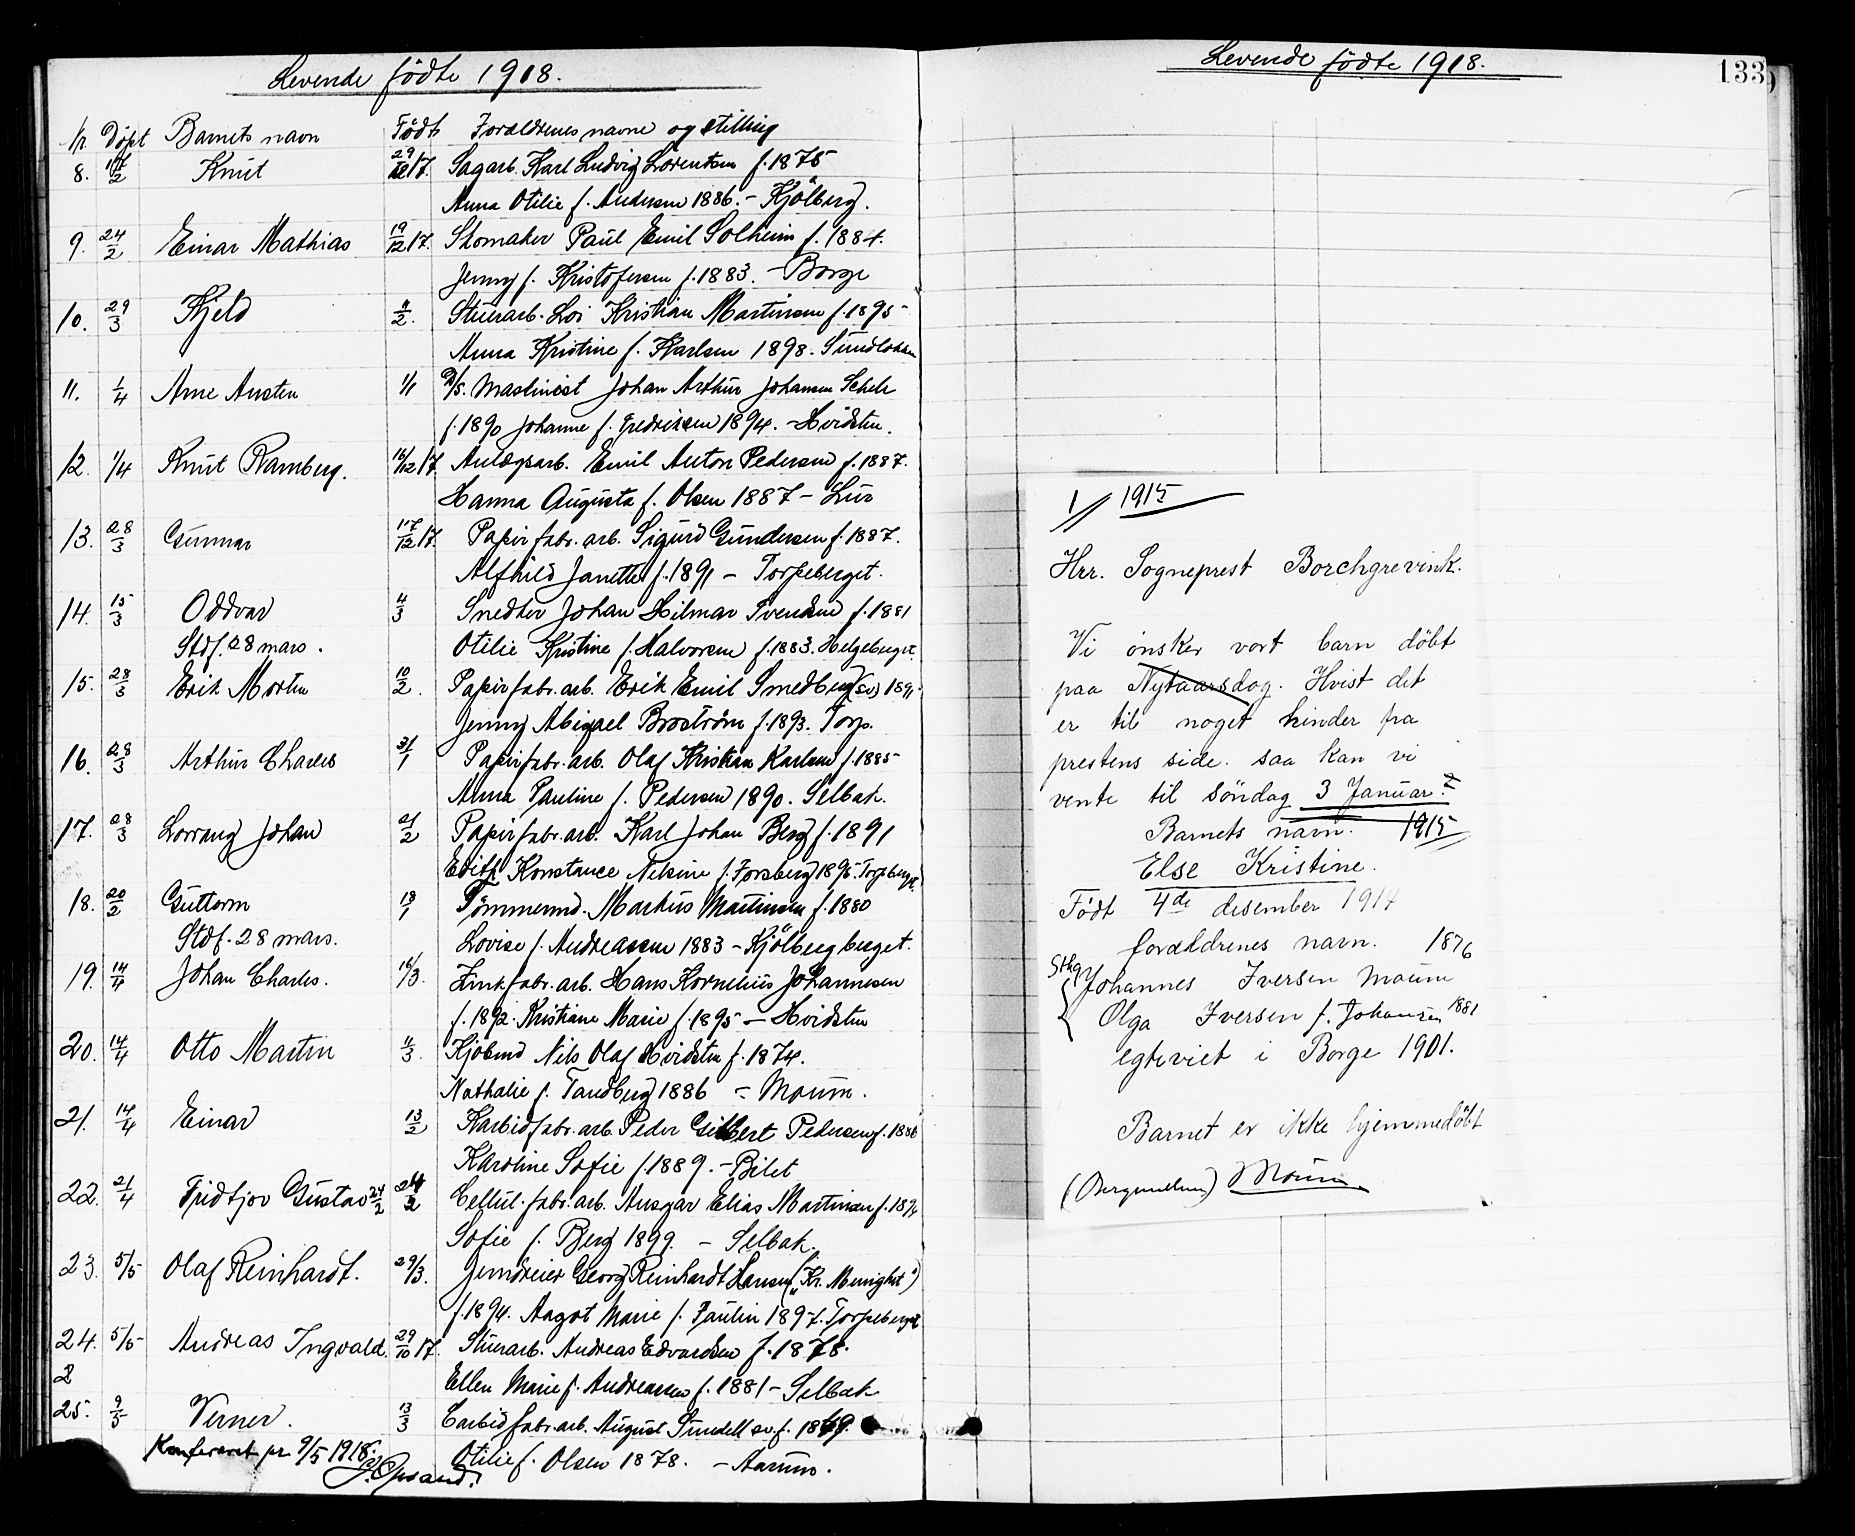 Levende födte 1918.
Nr Döpt Barnets navn Födt Forældrenes navne og stilling
8. 17/2 Knut 29/12 17. Sagarb. Karl Ludvig Lorentsen f. 1875
Anna Otilie f. Andersen 1886. - Kjölberg.
9. 24/2 Einar Mathias 19/12 17. Skomaker Paul Emil Solheim f. 1884.
Jenny f. Kristofersen f. 1883. - Borge
10. 29/3 Kjeld 4/2. Stuerarb. Loi Kristian Martinsen f. 1895
Anna Kristine f. Karlsen 1898. Sundlökken
11. 1/4 Arne Austen 1/1 D/S. Maskinist Johan Arthur Johansen Scheli
f. 1890 Johanne f. Fredriksen 1894. - Hvidsten.
12. 1/4 Knut Ramberg. 14/12 17. Anlægsarb. Emil Anton Pedersen f. 1887.
Hanna Augusta f. Olsen 1887 - Lur
13. 28/3 Gunnar 17/12 17. Papirfabr. arb. Sigurd Gundersen f. 1887.
Alfhild Janette f. 1891 - Torpeberget.
14. 15/3 Oddvar 4/3 Snedker Johan Hilmar Svendsen f. 1881
Stdf. 28 mars. Otilie Kristine f. Halvorsen f. 1883. Helgeberget.
15. 28/3 Erik Morten 10/2. Papirfabr. arb. Erik Emil Smedberg (sv) 1891
Jenny Abigael Broström f. 1893. Torp.
16. 28/3 Arthur Charles 31/1 Papirfabr. arb. Olaf Kristian Karlsen f. 1885
Anna Pauline f. Pedersen 1890. Selbak.
17. 28/3 Lorrang Johan 21/2 Papirfabr. arb. Karl Johan Berg f. 1891
Edith Konstance Nilsine f. Forsberg 1895. Torpeberget
18. 20/2 Guttorm 13/1 Tömmermd. Markus Martinsen f. 1880
Stdf. 28 mars. Lovise f. Andreassen 1883 - Kjölbergberget.
19. 14/4 Johan Charles. 16/3. Zinkfabr. arb. Hans Kornelius Johannesen
f. 1892. Kristiane Marie f. 1895 - Hvidsten
20. 14/4 Otto Martin 11/3. Kjöbmd Nils Olaf Hvidsten f. 1874.
Nathalie f. Tandberg 1886 - Moum.
21. 14/4 Einar 13/2 Karbidfabr. arb. Peder Gilbert Pedersen f. 1886
Karoline Sofie f. 1889. - Bilet
22. 21/4 Fridtjov Gustav 24/2 24/2 Cellul. fabr. arb. Ansgar Elias Martinsen f. 1894
Sofie f. Berg 1899. - Selbak.
23. 5/5 Olaf Reinhardt. 29/3. Jerndreier Georg Reinhardt Hansen ("Kr. Menighet")
f. 1894. Aagot Marie f. Paulin 1897. Torpeberget
24. 5/5 Andreas Ingvald. 29/10 17. Stuerarb. Andreas Edvardsen f. 1878.
2 Ellen Marie f. Andreassen f. 1881 - Selbak
25. 9/5 Verner. 13/3 Carbidfabr. arb. August Sundell sv. f. 1869.
Otilie f. Olsen 1878. - Aarum.
Konfereret pr. 9/5 1918.
J. Opsand.
Levende födte 1918.
133
1/ 1915
Hrr. Sogneprest Borchgrevink.
Vi önsker vort barn döbt
paa Nytaarsdag. Hvist det
er til noget hinder fra
prestens side. saa kan vi
vente til söndag 3 Januar.
Barnets navn. 1915
Else Kristine.
Födt 4de desember 1914
forældrenes navn. 1876
Sthg Johannes Iversen Moum
Olga Iversen f. Johansen 1881
egteviet i Borge 1901.
Barnet er ikke hjemmedöbt
(Bergmellum) Moum